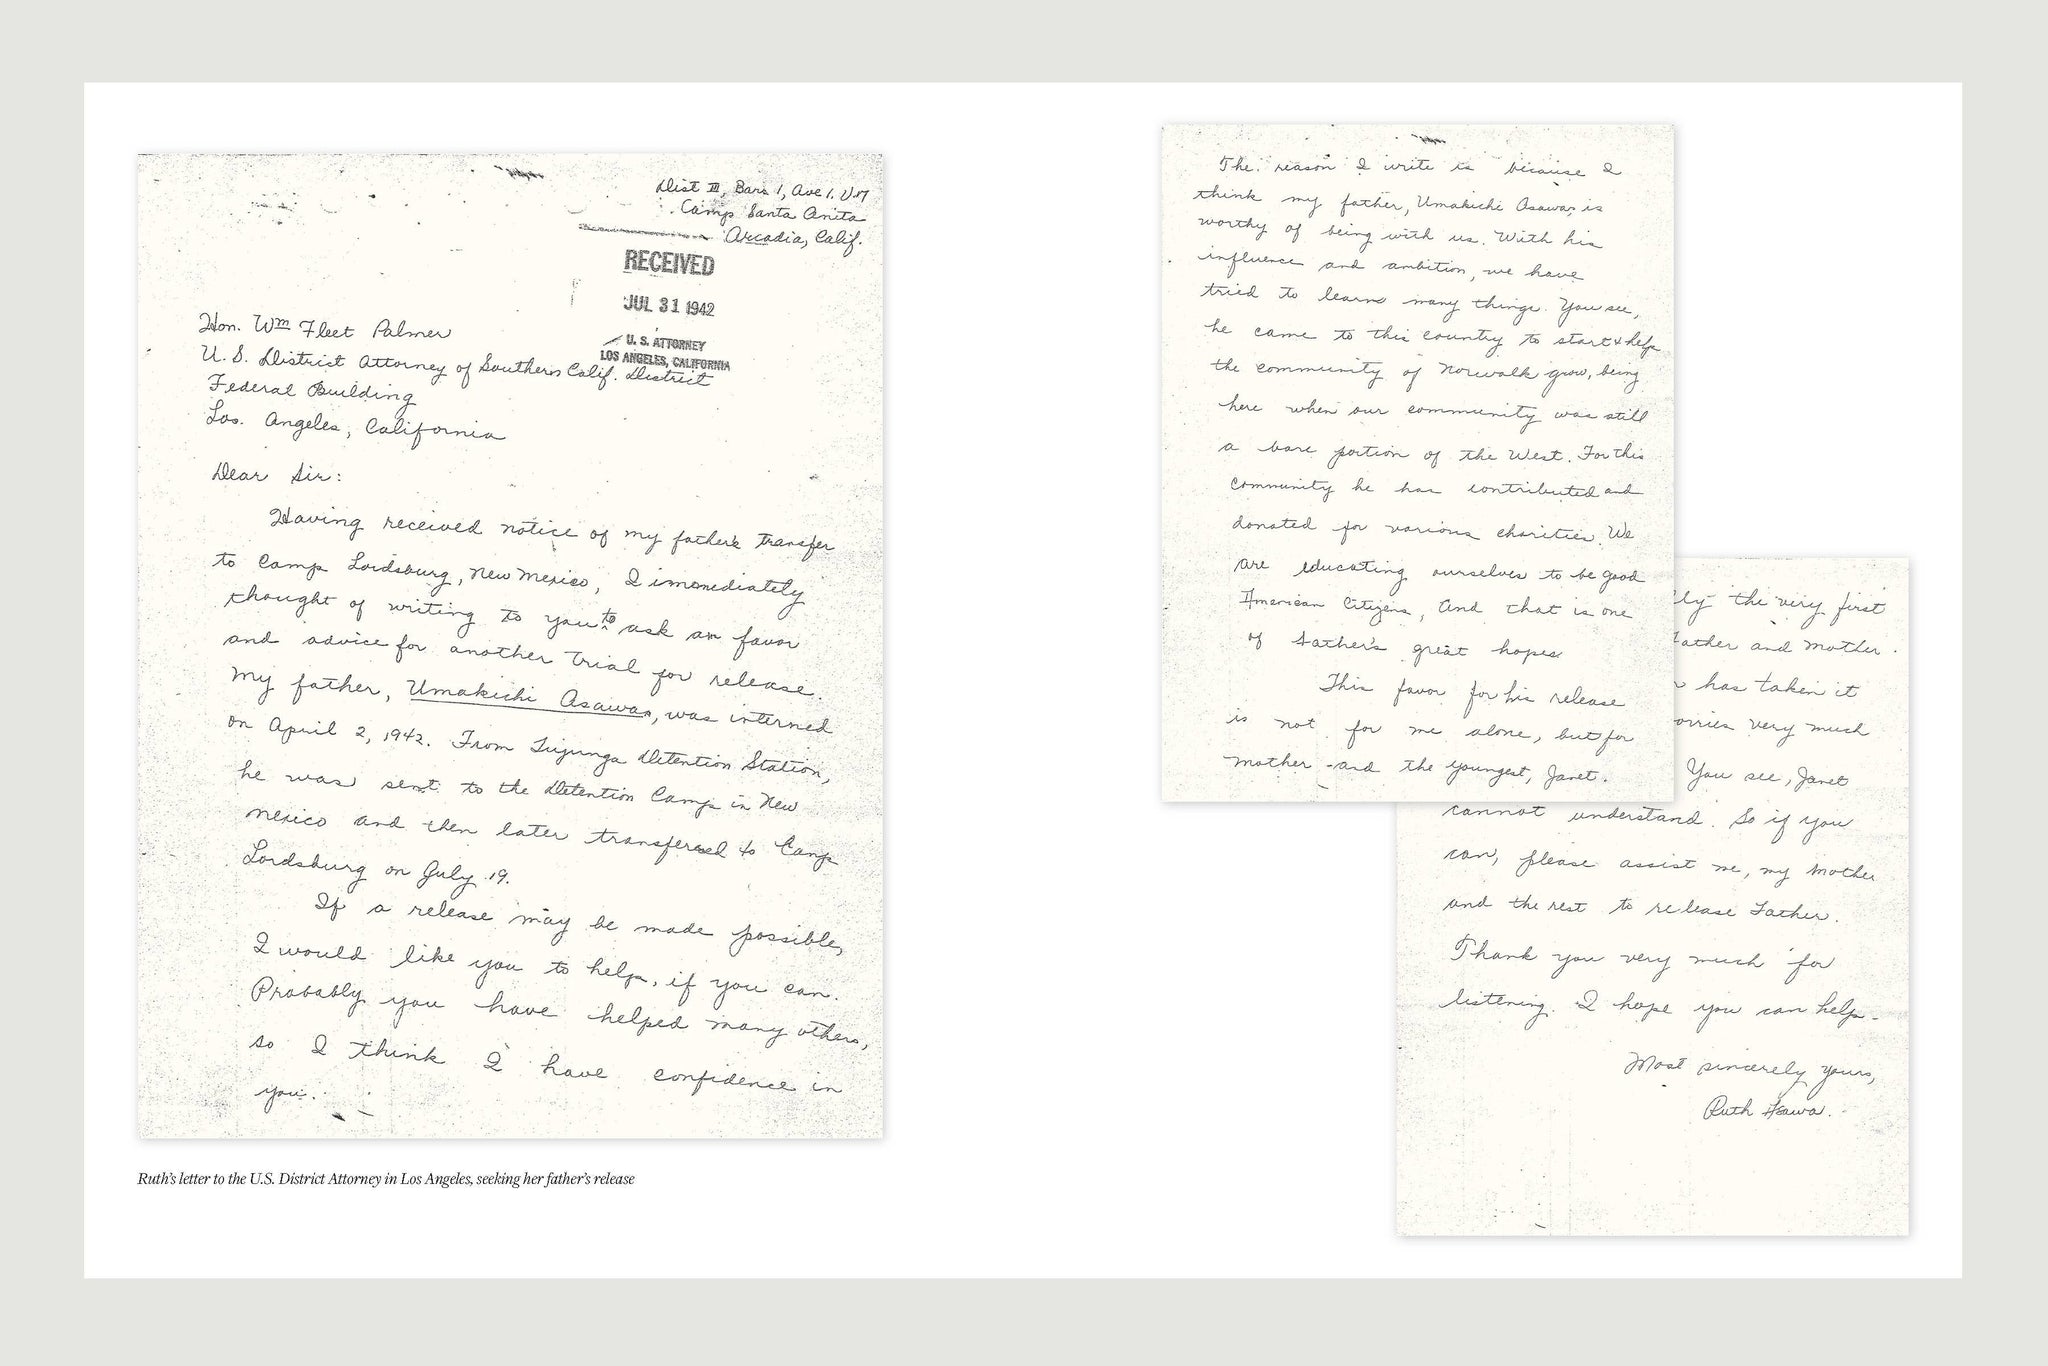 Dist III, Bars 1, Ave 1. U.7
Camp Santa Anita
Arcadia, Calif.
RECEIVED
JUL 31 1942
U. S. ATTORNEY
LOS ANGELES, CALIFORNIA
Hon. Wm Fleet Palmer
U. S. District Attorney of Southern Calif. District
Federal Building
Los. Angeles, California
Dear Sir:
Having received notice of my father's transfer
to Camp Lordsburg, New Mexico, I immediately
thought of writing to you to ask a favor
and advice for another trial for release.
My father, Umakichi Asawa, was interned
on April 2, 1942. From Tujunga Detention Station,
he was sent to the Detention Camp in New
Mexico and then later transfered to Camp
Lordsburg on July 19.
If a release may be made possible,
I would like you to help, if you can.
Probably you have helped many others,
so I think I have confidence in
you.
Ruth's letter to the U.S. District Attorney in Los Angeles, seeking her father's release
The reason I write is because I
think my father, Umakichi Asawa, is
worthy of being with us. With his
influence and ambition, we have
tried to learn many things. You see,
he came to this country to start & help
the community of Norwalk grow, being
here when our community was still
a bare portion of the West. For this
community he has contributed and
donated for various charities. We
are educating ourselves to be good
American Citizens, And that is one
of Father's great hopes.
This favor for his release
is not for me alone, but for
mother and the youngest, Janet.
the very first
Father and Mother.
has taken it
worries very much
You see, Janet
cannot understand. So if you
can, please assist me, my Mother
and the rest to release Father.
Thank you very much for
listening. I hope you can help-
Most sincerely yours,
Ruth Asawa.